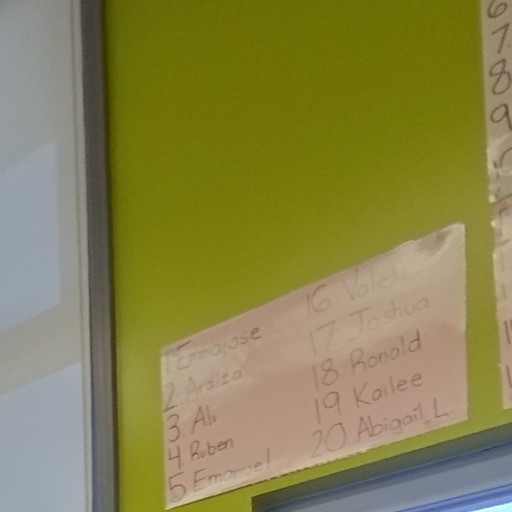 1 Emmajose
2 Araiza
3 Ali
4 Ruben
5 Emanuel
16
17 Joshua
18 Ronald
19 Kailee
20 Abigail L
6
7
8
9